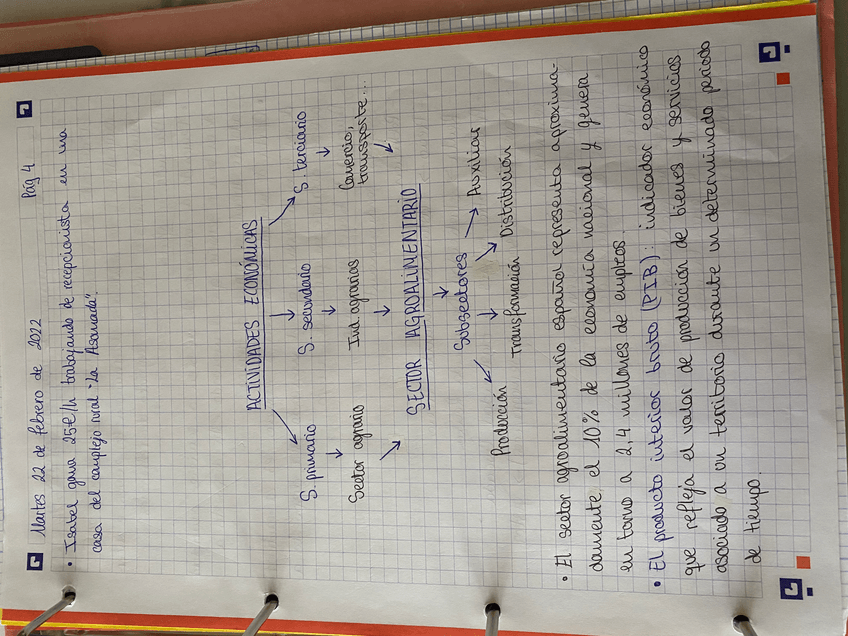 Martes 22 de febrero de 2022 Pág 4
• Isabel gana 25€/h trabajando de recepcionista en una
casa del complejo rural "La Asomada".
ACTIVIDADES ECONÓMICAS
S. primario S. secundario S. terciario
Sector agrario Ind. agrarias Comercio,
transporte...
SECTOR AGROALIMENTARIO
Subsectores
Producción Transformación Distribución Auxiliar
• El sector agroalimentario español representa aproxima-
damente el 10% de la economía nacional y genera
en torno a 2,4 millones de empleos.
• El producto interior bruto (PIB): indicador económico
que refleja el valor de producción de bienes y servicios
asociado a un territorio durante un determinado periodo
de tiempo.